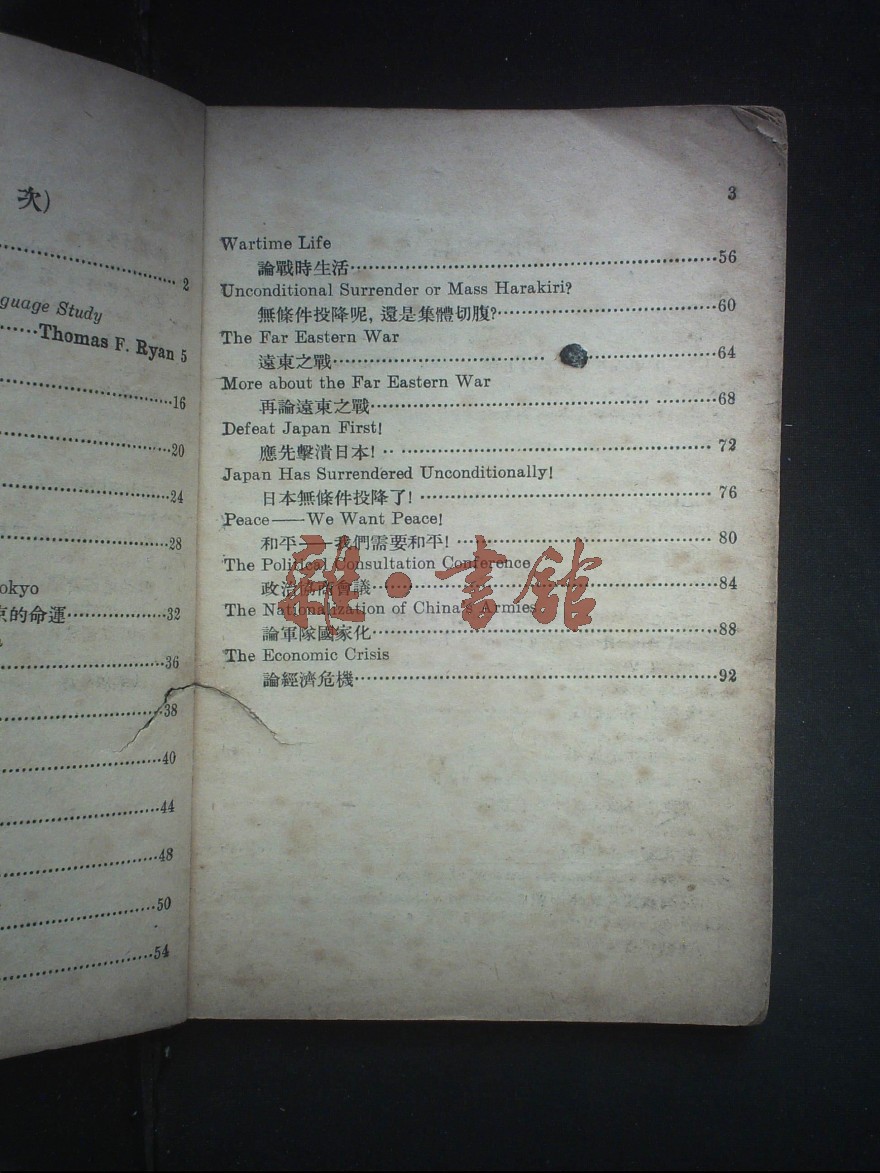 次)
2
guage Study
Thomas F. Ryan 5
16
20
24
28
okyo
的命運……………32
36
38
40
44
48
50
54
3
Wartime Life
論戰時生活……………56
Unconditional Surrender or Mass Harakiri?
無條件投降呢, 還是集體切腹?……………60
The Far Eastern War
遠東之戰……………64
More about the Far Eastern War
再論遠東之戰……………68
Defeat Japan First!
應先擊潰日本!……………72
Japan Has Surrendered Unconditionally!
日本無條件投降了!……………76
Peace——We Want Peace!
和平——我們需要和平!……………80
The Political Consultation Conference
政治協商會議……………84
The Nationalization of China's Armies
論軍隊國家化……………88
The Economic Crisis
論經濟危機……………92
雜·書館